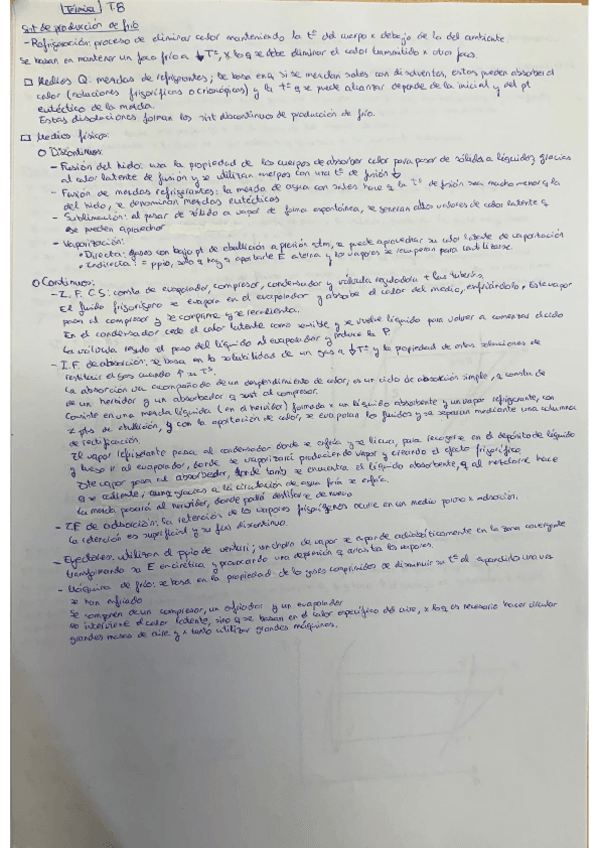 Térmica T8
Sist de producción de frío
- Refrigeración: proceso de eliminar calor manteniendo la tª del cuerpo x debajo de la del ambiente.
Se basan en mantener un foco frío a ↓Tª, x lo q se debe eliminar el calor transmitido x otros focos.
□ Medios Q: mezclas de refrigerantes; se basa en q si se mezclan sales con disolventes, estos pueden absorber el
calor (soluciones frigoríficas o criogógicas) y la tª q se puede alcanzar depende de la inicial y del pt
eutéctico de la mezcla.
Estas disoluciones forman los sist discontinuos de producción de frío.
□ Medios físicos:
○ Discontinuos:
- Fusión del hielo: usa la propiedad de los cuerpos de absorber calor para pasar de sólido a líquido, gracias
al calor latente de fusión y se utilizan cuerpos con una tª de fusión ↓
- Fusión de mezclas refrigerantes: la mezcla de agua con sales hace q la Tª de fusión sea mucho menor q la
del hielo, se denominan mezclas eutécticas
- Sublimación: al pasar de sólido a vapor de forma espontánea, se generan altos valores de calor latente q
se pueden aprovechar
- Vaporización:
• Directa: gases con bajo pt de ebullición a presión atm, se puede aprovechar su calor latente de vaporización
• Indirecta: = ppio, solo q hay q aportarle E externa y los vapores se recuperan para reutilizarse.
○ Continuos:
- I.F. CS: consta de evaporador, compresor, condensador y válvula reguladora + las tuberías.
El fluido frigorígeno se evapora en el evaporador y absorbe el calor del medio, enfriándolo. Este vapor
pasa al compresor y se comprime y se recalienta.
En el condensador cede el calor latente como sensible y se vuelve líquido para volver a comenzar el ciclo
La válvula regula el paso del líquido al evaporador y reduce la P.
- I.F. de absorción: se basa en la solubilidad de un gas a ↓Tª y la propiedad de estas soluciones de
restituir el gas cuando ↑ su Tª.
La absorción va acompañada de un desprendimiento de calor, es un ciclo de absorción simple, q consta de
de un hervidor y un absorbedor q sust al compresor.
Consiste en una mezcla líquida (en el hervidor) formada x un líquido absorbente y un vapor refrigerante, con
≠ ptos de ebullición, y con la aportación de calor, se evaporan los fluidos y se separan mediante una columna
de rectificación.
El vapor refrigerante pasa al condensador donde se enfría y se licua, para recogerse en el depósito de líquido
y luego ir al evaporador, donde se vaporizará produciendo vapor y creando el efecto frigorífico
Este vapor pasa al absorbedor, donde tamb se encuentra el líquido absorbente, q al mezclarse hace
q se caliente, aunq gracias a la circulación de agua fría se enfría.
La mezcla pasará al hervidor, donde podrá destilarse de nuevo
- IF de adsorción: la retención de los vapores frigorígenos ocurre en un medio poroso x adsorción.
La retención es superficial y su fcto discontinuo.
- Eyectores: utilizan el ppio de venturi; un chorro de vapor se expande adiabáticamente en la zona convergente
transformando su E en cinética y provocando una depresión q arrastra los vapores.
- Máquina de frío: se basa en la propiedad de los gases comprimidos de disminuir su tª al expandirlo una vez
se han enfriado
Se componen de un compresor, un enfriador y un evaporador
no interviene el calor latente, sino q se basan en el calor específico del aire, x lo q es necesario hacer circular
grandes masas de aire y x tanto utilizar grandes máquinas.